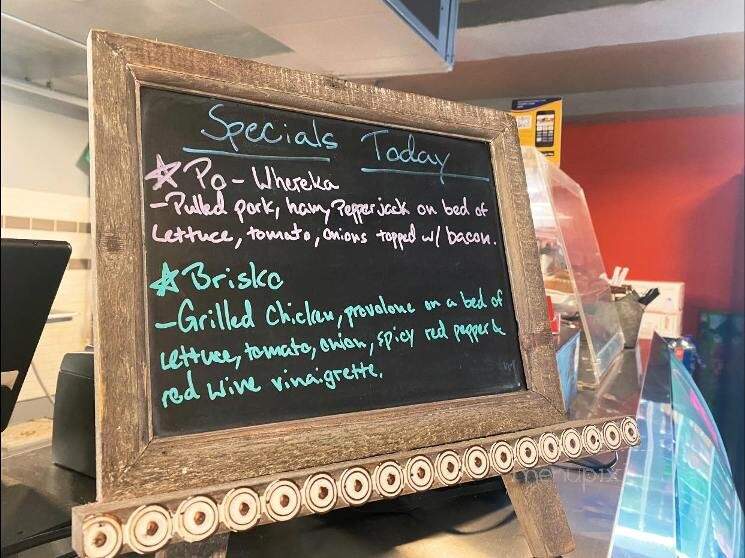 Specials Today
☆ Po-Whereka
-Pulled pork, ham, Pepperjack on bed of
Lettuce, tomato, onions topped w/ bacon.
☆ Brisko
-Grilled Chicken, provolone on a bed of
Lettuce, tomato, onion, spicy red pepper &
red wine vinaigrette.
menupix